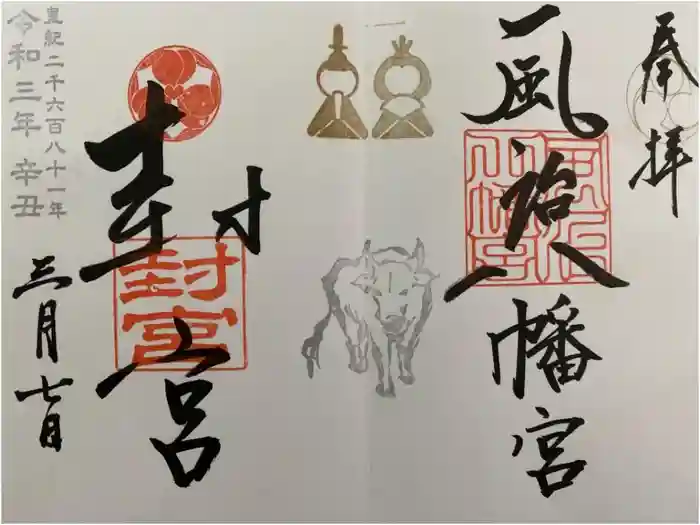 奉拝
風治八幡宮
封宮
封宮
三月七日
皇紀二千六百八十一年
令和三年 辛丑